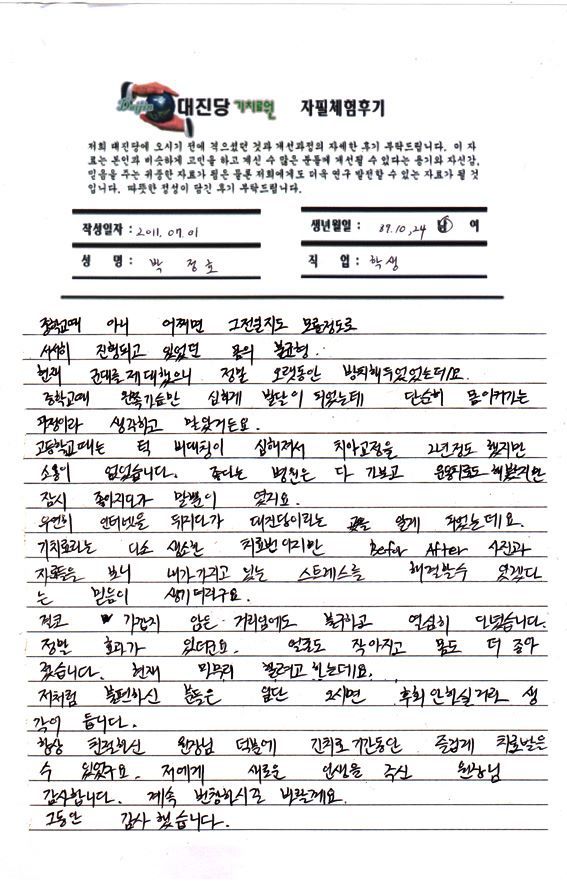 Daijin 대진당 기치료원 자필체험후기
저희 대진당에 오시기 전에 겪으셨던 것과 개선과정의 자세한 후기 부탁드립니다. 이 자
료는 본인과 비슷하게 고민을 하고 계신 수 많은 분들께 개선될 수 있다는 용기와 자신감,
믿음을 주는 귀중한 자료가 됨은 물론 저희에게도 더욱 연구 발전할 수 있는 자료가 될 것
입니다. 따뜻한 정성이 담긴 후기 부탁드립니다.
작성일자 : 2011.07.01 생년월일 : 89.10.24 남 여
성 명 : 박 정호 직 업 : 학생
중학교때 아니 어쩌면 그전일지도 모를정도로
서서히 진행되고 있었던 몸의 불균형.
현재 군대를 제대했으니 정말 오랫동안 방치해두었었는데요.
중학교때 왼쪽가슴만 심하게 발달이 되었는데 단순히 몸이커가는
과정이라 생각하고 말았거든요.
고등학교때는 턱 비대칭이 심해져서 치아교정을 2년정도 했지만
소용이 없었습니다. 좋다는 병원은 다 가보고 운동치료도 해봤지만
잠시 좋아지다가 말뿐이 였지요.
우연히 인터넷을 뒤지다가 대진당이라는 곳을 알게 되었는데요.
기치료라는 다소 생소한 치료법이지만 Befor After 사진과
자료들을 보니 내가가지고 있는 스트레스를 해결할수 있겠다
는 믿음이 생기더라구요.
결코 가깝지 않은 거리임에도 불구하고 열심히 다녔습니다.
정말 효과가 있더군요. 얼굴도 작아지고 몸도 더 좋아
졌습니다. 현재 마무리 할려고 하는데요.
저처럼 불편하신 분들은 일단 오시면 후회 안하실거라 생
각이 듭니다.
항상 친절하신 원장님 덕분에 긴치료기간동안 즐겁게 치료받을
수 있었구요. 저에게 새로운 인생을 주신 원장님
감사합니다. 계속 번창하시조 바랄께요.
그동안 감사 했습니다.